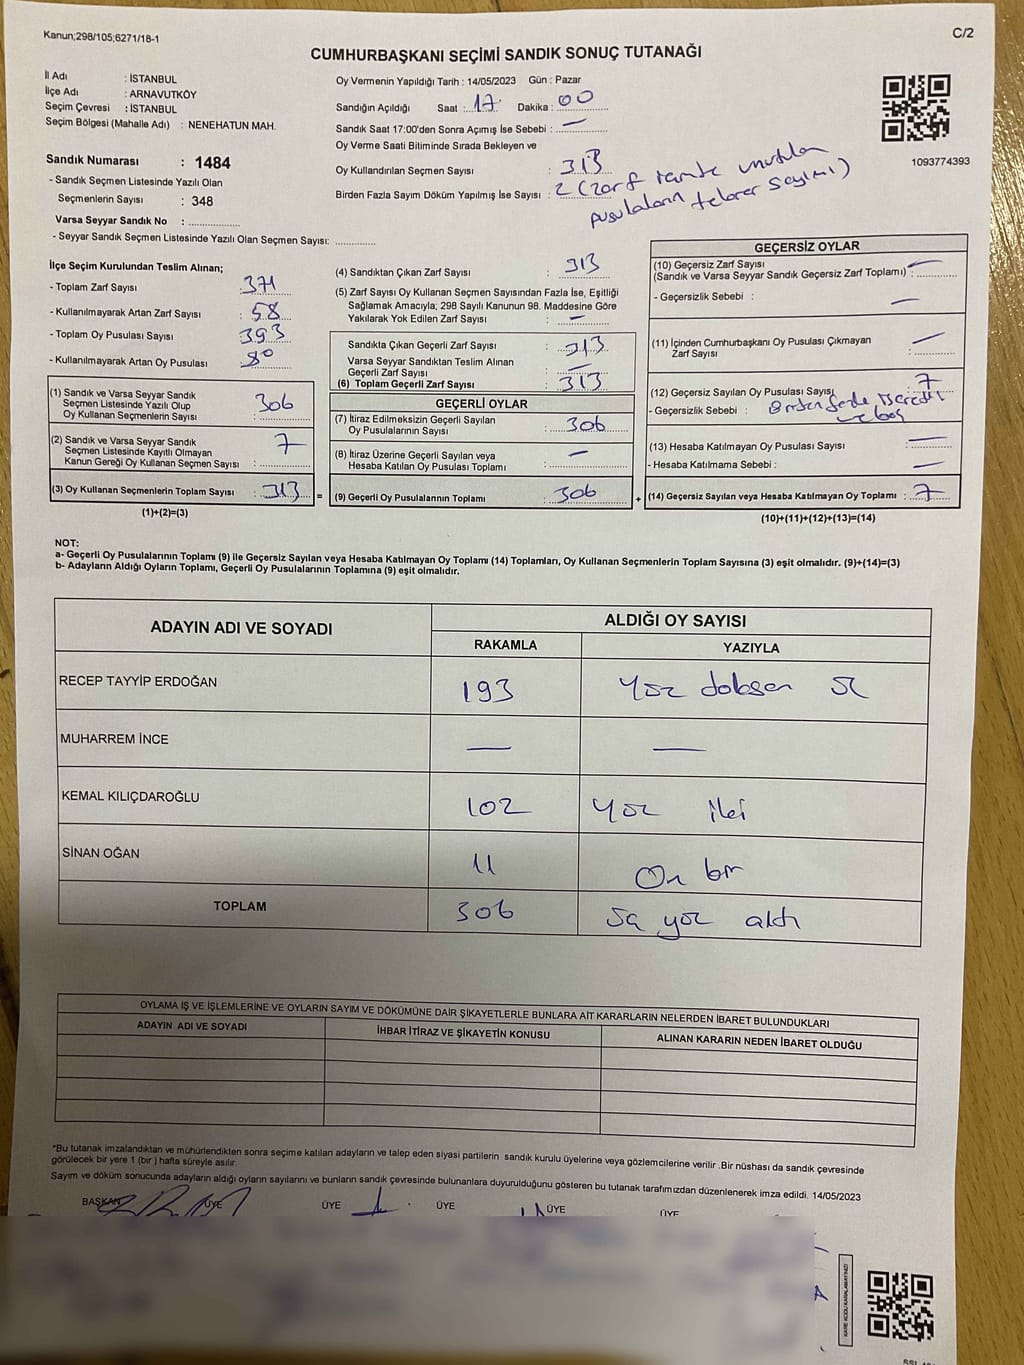 Kanun;298/105;6271/18-1
C/2
CUMHURBAŞKANI SEÇİMİ SANDIK SONUÇ TUTANAĞI
İl Adı : İSTANBUL
İlçe Adı : ARNAVUTKÖY
Seçim Çevresi : İSTANBUL
Seçim Bölgesi (Mahalle Adı) : NENEHATUN MAH.
Sandık Numarası : 1484
- Sandık Seçmen Listesinde Yazılı Olan
Seçmenlerin Sayısı : 348
Varsa Seyyar Sandık No :
- Seyyar Sandık Seçmen Listesinde Yazılı Olan Seçmen Sayısı:
Oy Vermenin Yapıldığı Tarih : 14/05/2023 Gün : Pazar
Sandığın Açıldığı Saat : 17 Dakika : 00
Sandık Saat 17:00'den Sonra Açımış İse Sebebi : —
Oy Verme Saati Bitiminde Sırada Bekleyen ve
Oy Kullandırılan Seçmen Sayısı : 313
Birden Fazla Sayım Döküm Yapılmış İse Sayısı : 2 (zarf unutulan
pusulaların tekrar sayımı)
1093774393
İlçe Seçim Kurulundan Teslim Alınan;
- Toplam Zarf Sayısı : 371
- Kullanılmayarak Artan Zarf Sayısı : 58
- Toplam Oy Pusulası Sayısı : 393
- Kullanılmayarak Artan Oy Pusulası : 80
(1) Sandık ve Varsa Seyyar Sandık
Seçmen Listesinde Yazılı Olup
Oy Kullanan Seçmenlerin Sayısı : 306
(2) Sandık ve Varsa Seyyar Sandık
Seçmen Listesinde Kayıtlı Olmayan
Kanun Gereği Oy Kullanan Seçmen Sayısı : 7
(3) Oy Kullanan Seçmenlerin Toplam Sayısı : 313 =
(1)+(2)=(3)
(4) Sandıktan Çıkan Zarf Sayısı : 313
(5) Zarf Sayısı Oy Kullanan Seçmen Sayısından Fazla İse, Eşitliği
Sağlamak Amacıyla; 298 Sayılı Kanunun 98. Maddesine Göre
Yakılarak Yok Edilen Zarf Sayısı : —
Sandıkta Çıkan Geçerli Zarf Sayısı : 313
Varsa Seyyar Sandıktan Teslim Alınan
Geçerli Zarf Sayısı : —
(6) Toplam Geçerli Zarf Sayısı : 313
GEÇERLİ OYLAR
(7) İtiraz Edilmeksizin Geçerli Sayılan
Oy Pusulalarının Sayısı : 306
(8) İtiraz Üzerine Geçerli Sayılan veya
Hesaba Katılan Oy Pusulası Toplamı : —
(9) Geçerli Oy Pusulalarının Toplamı : 306 +
GEÇERSİZ OYLAR
(10) Geçersiz Zarf Sayısı —
(Sandık ve Varsa Seyyar Sandık Geçersiz Zarf Toplamı) :
- Geçersizlik Sebebi : —
(11) İçinden Cumhurbaşkanı Oy Pusulası Çıkmayan
Zarf Sayısı : —
(12) Geçersiz Sayılan Oy Pusulası Sayısı : 7
- Geçersizlik Sebebi : Birden fazla
ve boş
(13) Hesaba Katılmayan Oy Pusulası Sayısı : —
- Hesaba Katılmama Sebebi : —
(14) Geçersiz Sayılan veya Hesaba Katılmayan Oy Toplamı : 7
(10)+(11)+(12)+(13)=(14)
NOT:
a- Geçerli Oy Pusulalarının Toplamı (9) ile Geçersiz Sayılan veya Hesaba Katılmayan Oy Toplamı (14) Toplamları, Oy Kullanan Seçmenlerin Toplam Sayısına (3) eşit olmalıdır. (9)+(14)=(3)
b- Adayların Aldığı Oyların Toplamı, Geçerli Oy Pusulalarının Toplamına (9) eşit olmalıdır.
ADAYIN ADI VE SOYADI
ALDIĞI OY SAYISI
RAKAMLA YAZIYLA
RECEP TAYYİP ERDOĞAN 193 Yüz doksan üç
MUHARREM İNCE — —
KEMAL KILIÇDAROĞLU 102 yüz iki
SİNAN OĞAN 11 On bir
TOPLAM 306 üç yüz altı
OYLAMA İŞ VE İŞLEMLERİNE VE OYLARIN SAYIM VE DÖKÜMÜNE DAİR ŞİKAYETLERLE BUNLARA AİT KARARLARIN NELERDEN İBARET BULUNDUKLARI
ADAYIN ADI VE SOYADI İHBAR İTİRAZ VE ŞİKAYETİN KONUSU ALINAN KARARIN NEDEN İBARET OLDUĞU
*Bu tutanak imzalandıktan ve mühürlendikten sonra seçime katılan adayların ve talep eden siyasi partilerin sandık kurulu üyelerine veya gözlemcilerine verilir .Bir nüshası da sandık çevresinde
görülecek bir yere 1 (bir) hafta süreyle asılır.
Sayım ve döküm sonucunda adayların aldığı oyların sayılarını ve bunların sandık çevresinde bulunanlara duyurulduğunu gösteren bu tutanak tarafımızdan düzenlenerek imza edildi. 14/05/2023
BAŞKAN ÜYE ÜYE ÜYE ÜYE ÜYE